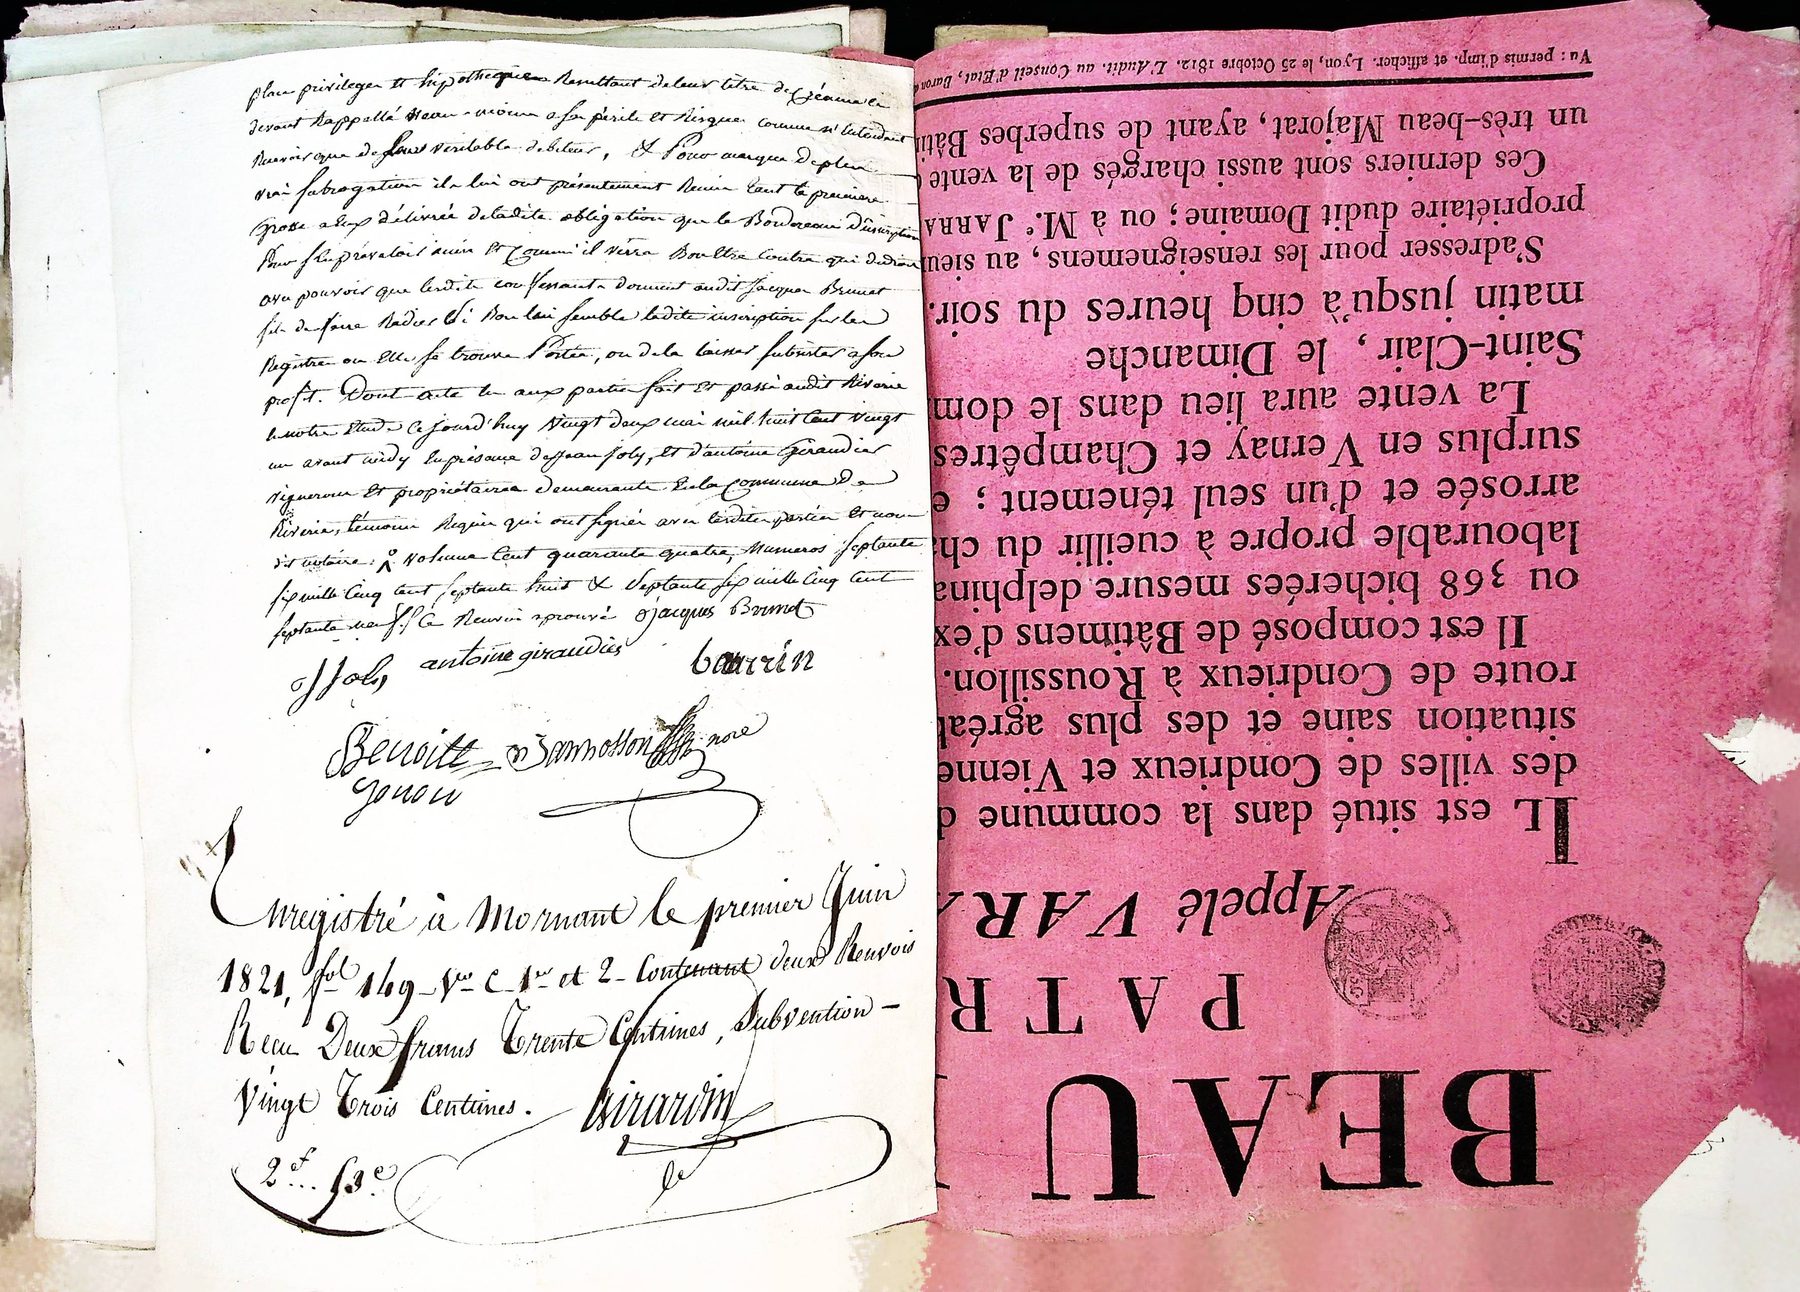 place privileges et hipotheques Resultant de leur titre de Créance ci
devant Rappellé neanmoins a ses périls et Risques comme n'entendant
Recevoir que de leurs veritable debiteur, & Pour marque de plus
vrai subrogation ils lui ont présentement Remis tant la premiere
Grosse a Eux délivrée de ladite obligation que le Bordereau d'inscription
Pour s'en prévaloir ainsi Et Comm'il verra Bon Etre Contre qui de droit
avec pouvoir que lesdits confessants donnent audit Jacques Brunet
de faire Radier si Bon lui semble ladite inscription sur les
Registres ou Elle se trouve Portée, ou de la laisser subsister a son
profit. Dont acte lu aux parties fait Et passé audit Riverie
En notre Etude Ce jourd'huy vingt deux mai mil huit cent vingt
un avant midy En présence de Jean Joly, Et d'antoine Giraudier
vignerons Et propriétaires demeurants En la Commune De
Riverie, témoins Requis qui ont signés avec lesdites parties Et nous
dit notaire. volume Cent quarante quatre, Numeros septante
six mille Cinq cent septante huit & septante six mille Cinq Cent
septante neuf. Ce Renvoi aprouvé Jacques Brunet
J Joly antoine giraudier barrin
Benoitte Jannosson nore
Gonon
Enregistré à Mornant le premier Juin
1821, fol 149 Vo C 1re et 2 Contenant deux Renvois
Recu Deux francs Trente Centimes, Subvention
Vingt Trois Centimes. Girardin
2f.. 53c.
BEAU
PATR
Appelé VARA
IL est situé dans la commune d
des villes de Condrieux et Vienne
situation saine et des plus agréab
route de Condrieux à Roussillon.
Il est composé de Bâtimens d'ex
ou 368 bicherées mesure delphina
labourable propre à cueillir du cha
arrosée et d'un seul ténement ; e
surplus en Vernay et Champêtres
La vente aura lieu dans le dom
Saint-Clair, le Dimanche
matin jusqu'à cinq heures du soir.
S'adresser pour les renseignemens, au sieur
propriétaire dudit Domaine; ou à Me. JARRA
Ces derniers sont aussi chargés de la vente
un très-beau Majorat, ayant de superbes Bâti
Vu : permis d'imp. et afficher. Lyon, le 25 Octobre 1812. L'Audit. au Conseil d'Etat, Baron